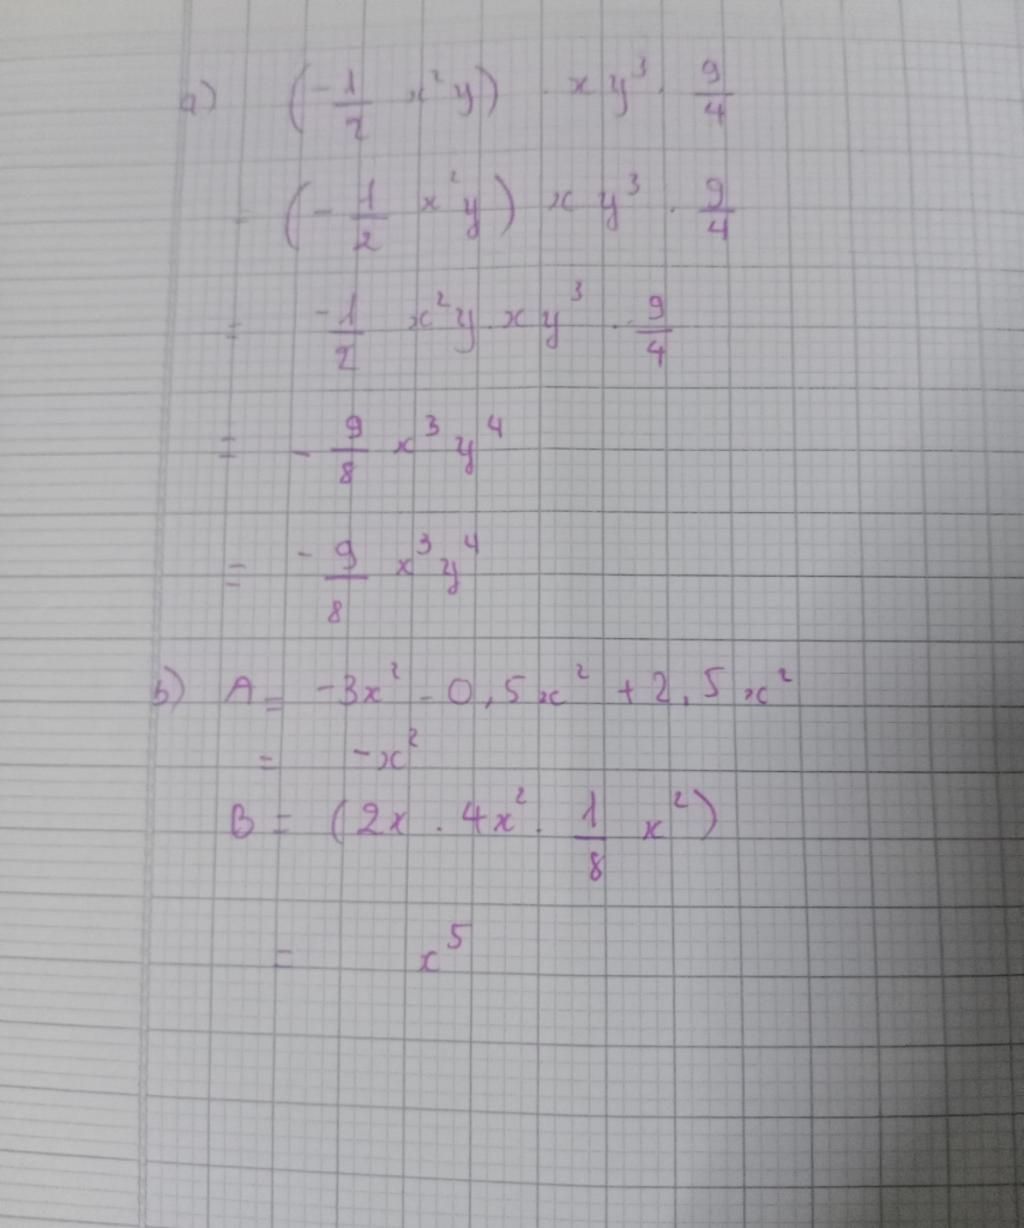 a) (-1/2 x²y) . x y³ . 9/4
= (-1/2 x²y) x y³ . 9/4
= -1/2 x²y x y³ . 9/4
= - 9/8 x³ y⁴
= -9/8 x³y⁴
b) A = -3x² - 0,5x² + 2,5x²
= -x²
B = (2x . 4x² . 1/8 x²)
= x⁵